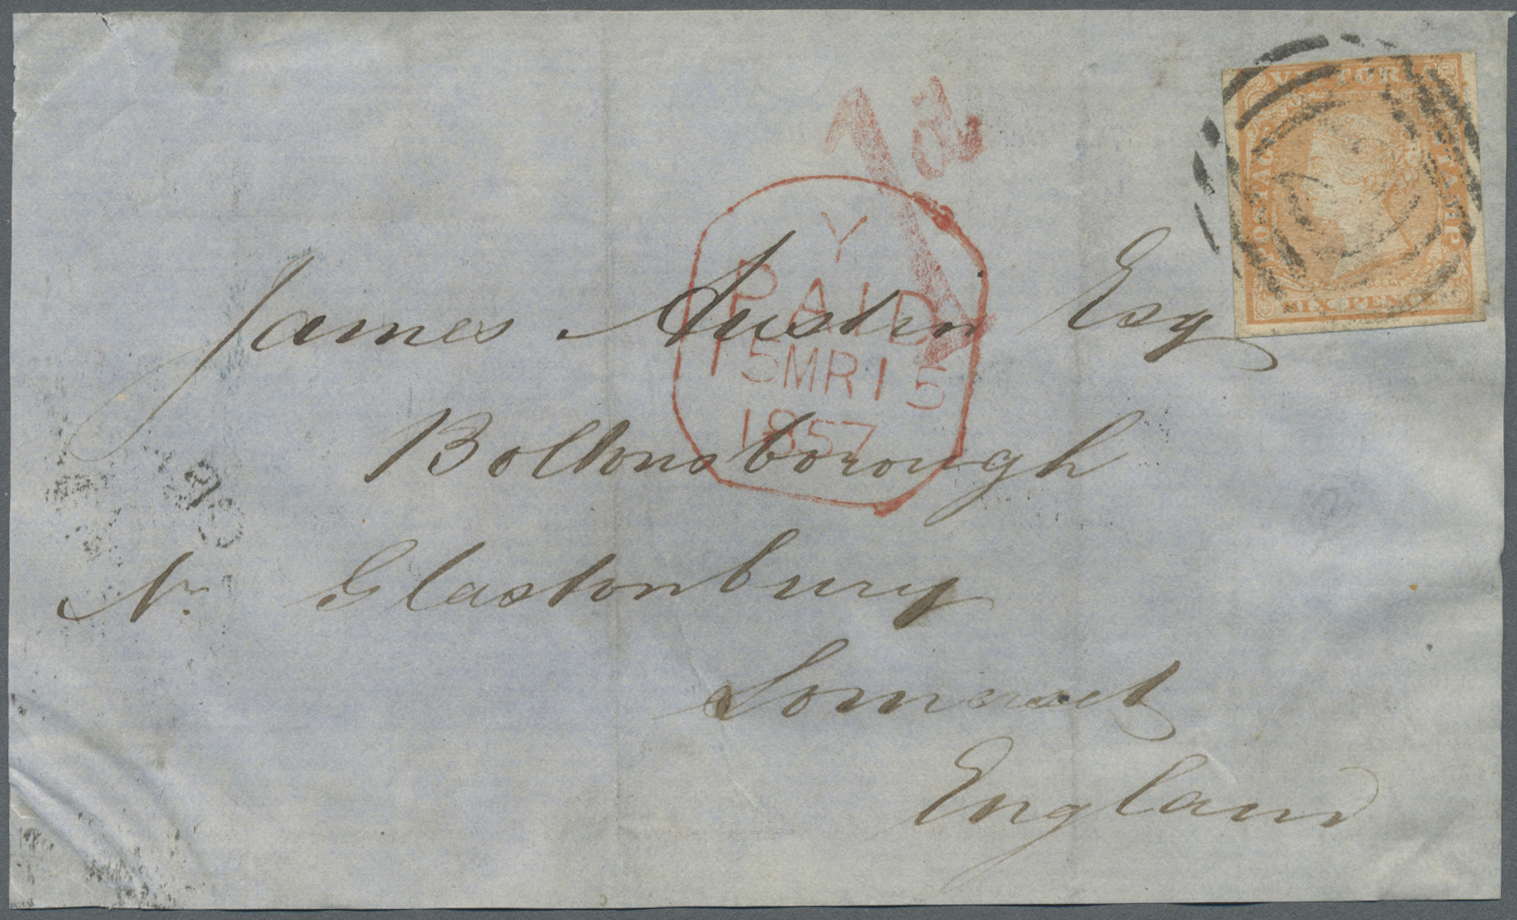 VICTORIA
POSTAGE STAMP
SIX PENCE
1d
Y
PAID
15MR15
1857
James Austin Esq
Boltonsborough
Nr Glastonbury
Somerset
England